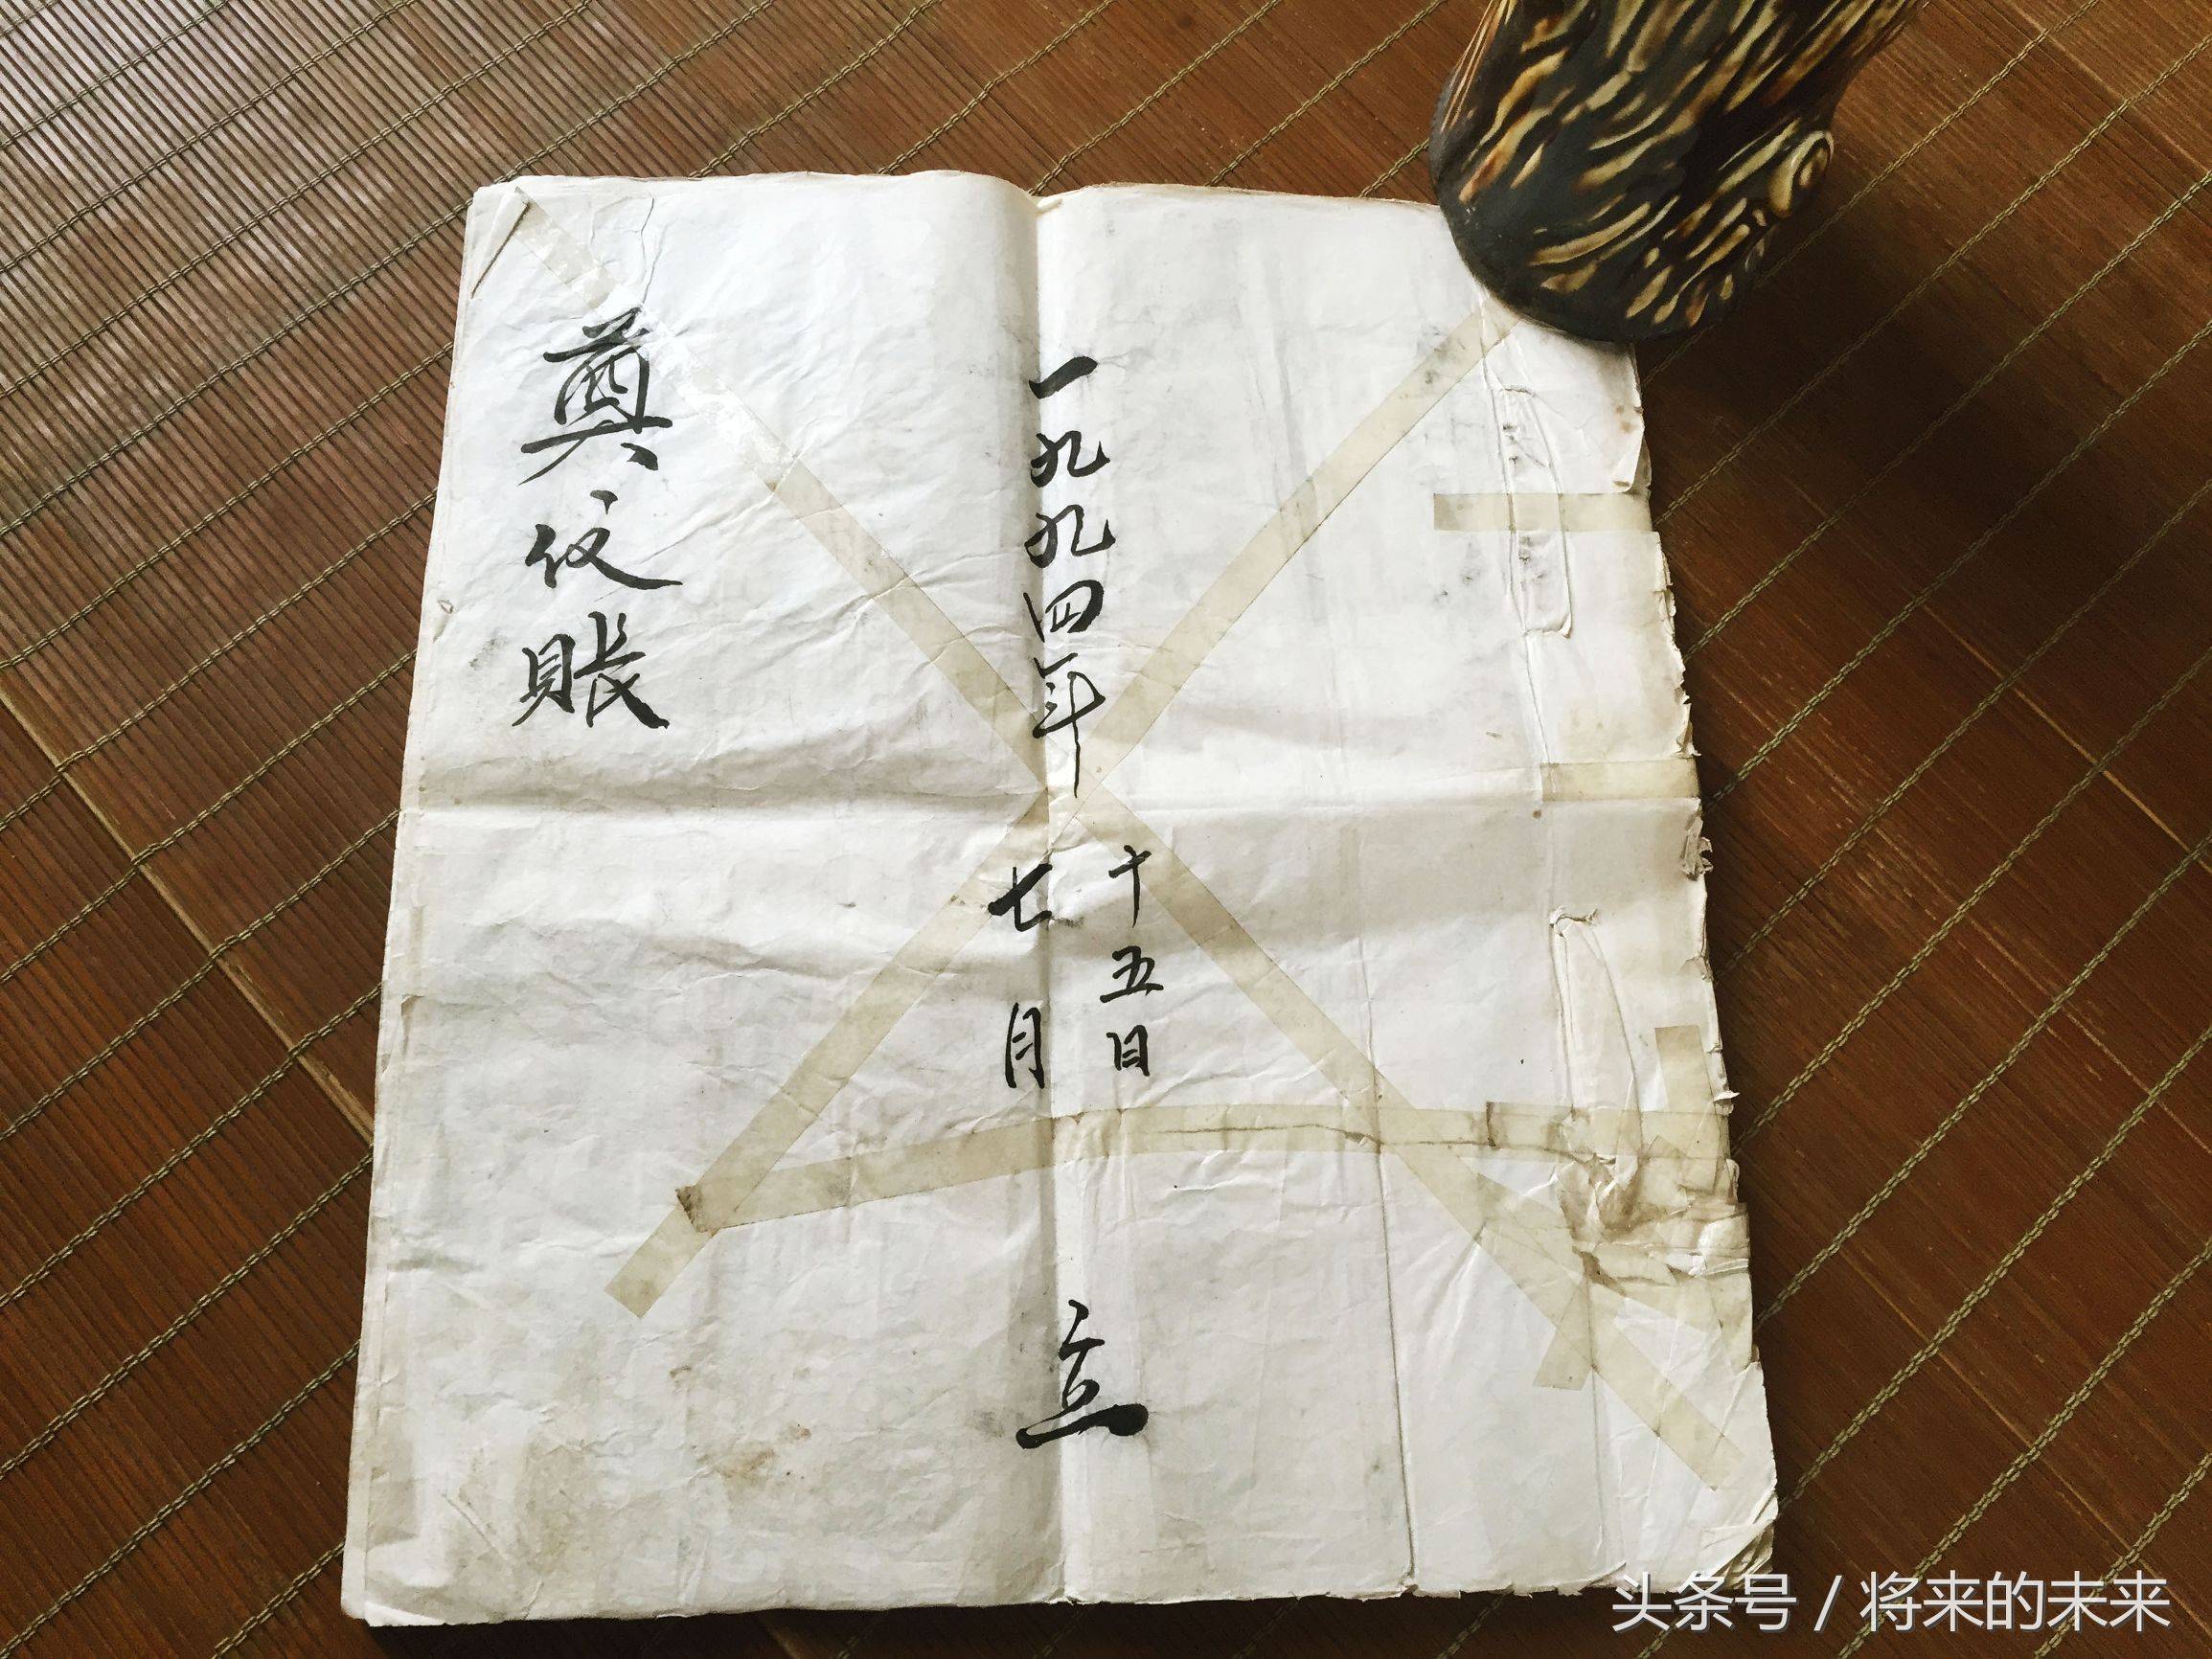 奠仪账
一九九四年
七月
十五日
立
头条号 / 将来的未来